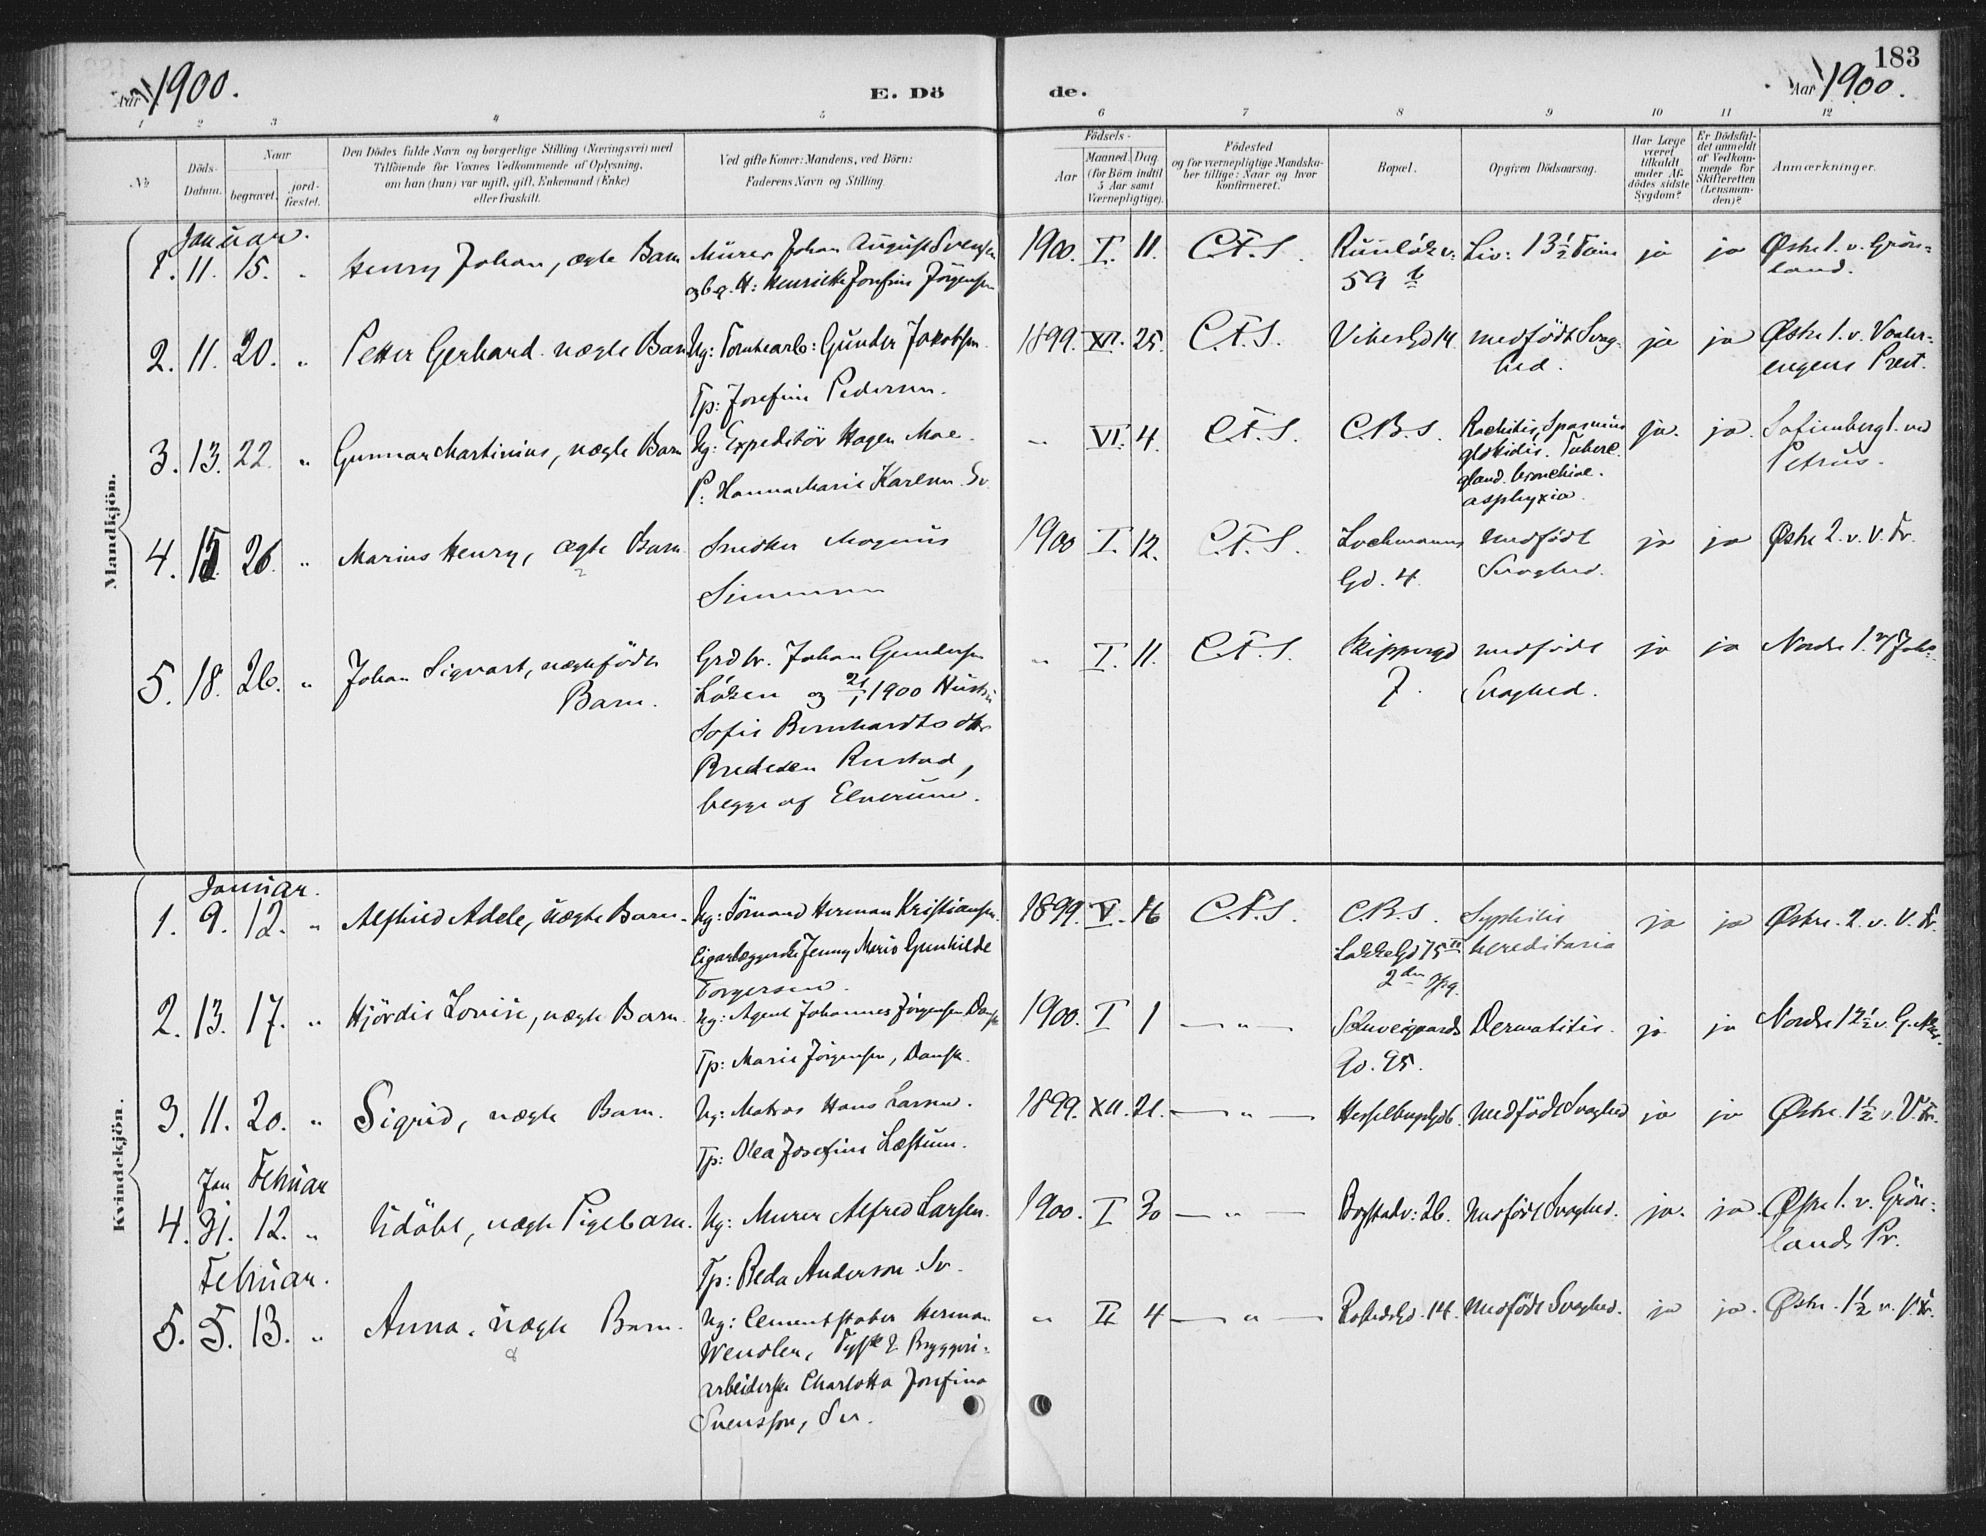 183
Aar 1900.
E. Dö
de.
Aar 1900.
1 2 3 4 5 6 7 8 9 10 11 12
№
Döds-
Datum.
Naar
begravet.
jord-
fæstet.
Den Dödes fulde Navn og borgerlige Stilling (Næringsvei) med
Tilföiende for Voxnes Vedkommende af Oplysning,
om han (hun) var ugift, gift, Enkemand (Enke)
eller fraskilt.
Ved gifte Koner: Mandens, ved Börn:
Faderens Navn og Stilling.
Födsels-
Aar
Maaned. Dag.
(for Börn indtil
5 Aar samt
Værnepligtige).
Födested
og for værnepligtige Mandska-
ber tillige: Naar og hvor
konfirmeret.
Bopæl.
Opgiven Dödsaarsag.
Har Læge
været
tilkaldt
under Af-
dödes sidste
Sygdom?
Er Dödsfal-
det anmeldt
af Vedkom-
mende for
Skifteretten
(Lensman-
den)?
Anmærkninger.
Mandkjön.
Januar.
1. 11. 15. " Henry Johan, ægte Barn Murer Johan August Svensen 1900. I. 11. C.F.S. 13½ Time ja ja Østre 1. v. Grön-
H: Henriette Josefine Jörgensen 59 b land.
2. 11. 20. " Petter Gerhard uægte Barn Ug: Gunder Jakobsen 1899. XI. 25. C.F.S. Vibesgd 14 medfödt Svag- ja ja Østre 1. v. Vaaler-
Tp: Josefine Pedersen. hed. engens Prest.
3. 13. 22. " Gunnar Martinius, uægte Barn Ug: Expeditör Hagen Moe. " VI. 4. C.F.S. C.B.S. Rachitis, Spasmus ja. ja. Sofienberg 1. ved
P: Hanna Marie Karlsen Sv. glottidis. Tuberc. Petrus.
gland. bronchiae.
asphyxia.
4. 15. 26. " Marius Henry, ægte Barn. Snedker Magnus 1900 I. 12. C.F.S. Lochmanns medfödt ja ja Østre 2. v. V. Fr.
Simensen Gd. 4. Svaghed.
5. 18. 26. " Johan Sigvart, uægtefödt Grdbr. Johan Gundersen " I. 11. C.F.S. Skippergd medfödt ja ja Nordre 1.
Barn. og 21/1 1900 Hustru 7. Svaghed.
Sofie Bernhardtsdtr
Bredesen Rustad,
begge af Elverum.
Kvindekjön.
Januar.
1. 9. 12. " Alfhild Adele, uægte Barn. Ug: Sömand Herman Kristiansen. 1899. V. 16 C.F.S. C.B.S. Syphilis ja ja Østre. 2. v. V. Fr.
Jenny Marie Gunhilde Gd 75 II hereditaria
Torgersen. 2den Opg.
2. 13. 17. " Hjördis Lovise, uægte Barn. Ug: Agent Johannes Jörgensen Dansk 1900. I 1 — " — Schweigaards Dermatitis. ja ja Nordre 1½ v. G. Aker.
Tp: Marie Jörgensen, Dansk. Gd. 95.
3. 11. 20. " Sigrid, uægte Barn. Ug: Matros Hans Larsen. 1899. XII. 21. — " — Hesselbergsgd 6. Medfödt Svaghed ja ja Østre. 1½ v. V. Fr.
Tp: Olea Josefine Læstum.
Jan Februar
4. 31. 12. " Udöbt, uægte Pigebarn. Ug: Murer Alfred Larsen. 1900. I 30 — " — Bogstadv: 26. Medfödt Svaghed. ja. ja. Østre 1. v. Grön-
Tp: Beda Anderson Sv. lands Pr.
Februar.
5. 5. 13. " Anna, uægte Barn. Ug: Cementstøber Herman " II 4 — " — Rostedsgd. 14. Medfödt Svaghed. ja ja. Østre. 1½ v. V. Fr.
Wendler, Tysk & Bryggeri-
arbeiderske Charlotta Josefina
Svensson, Sv.